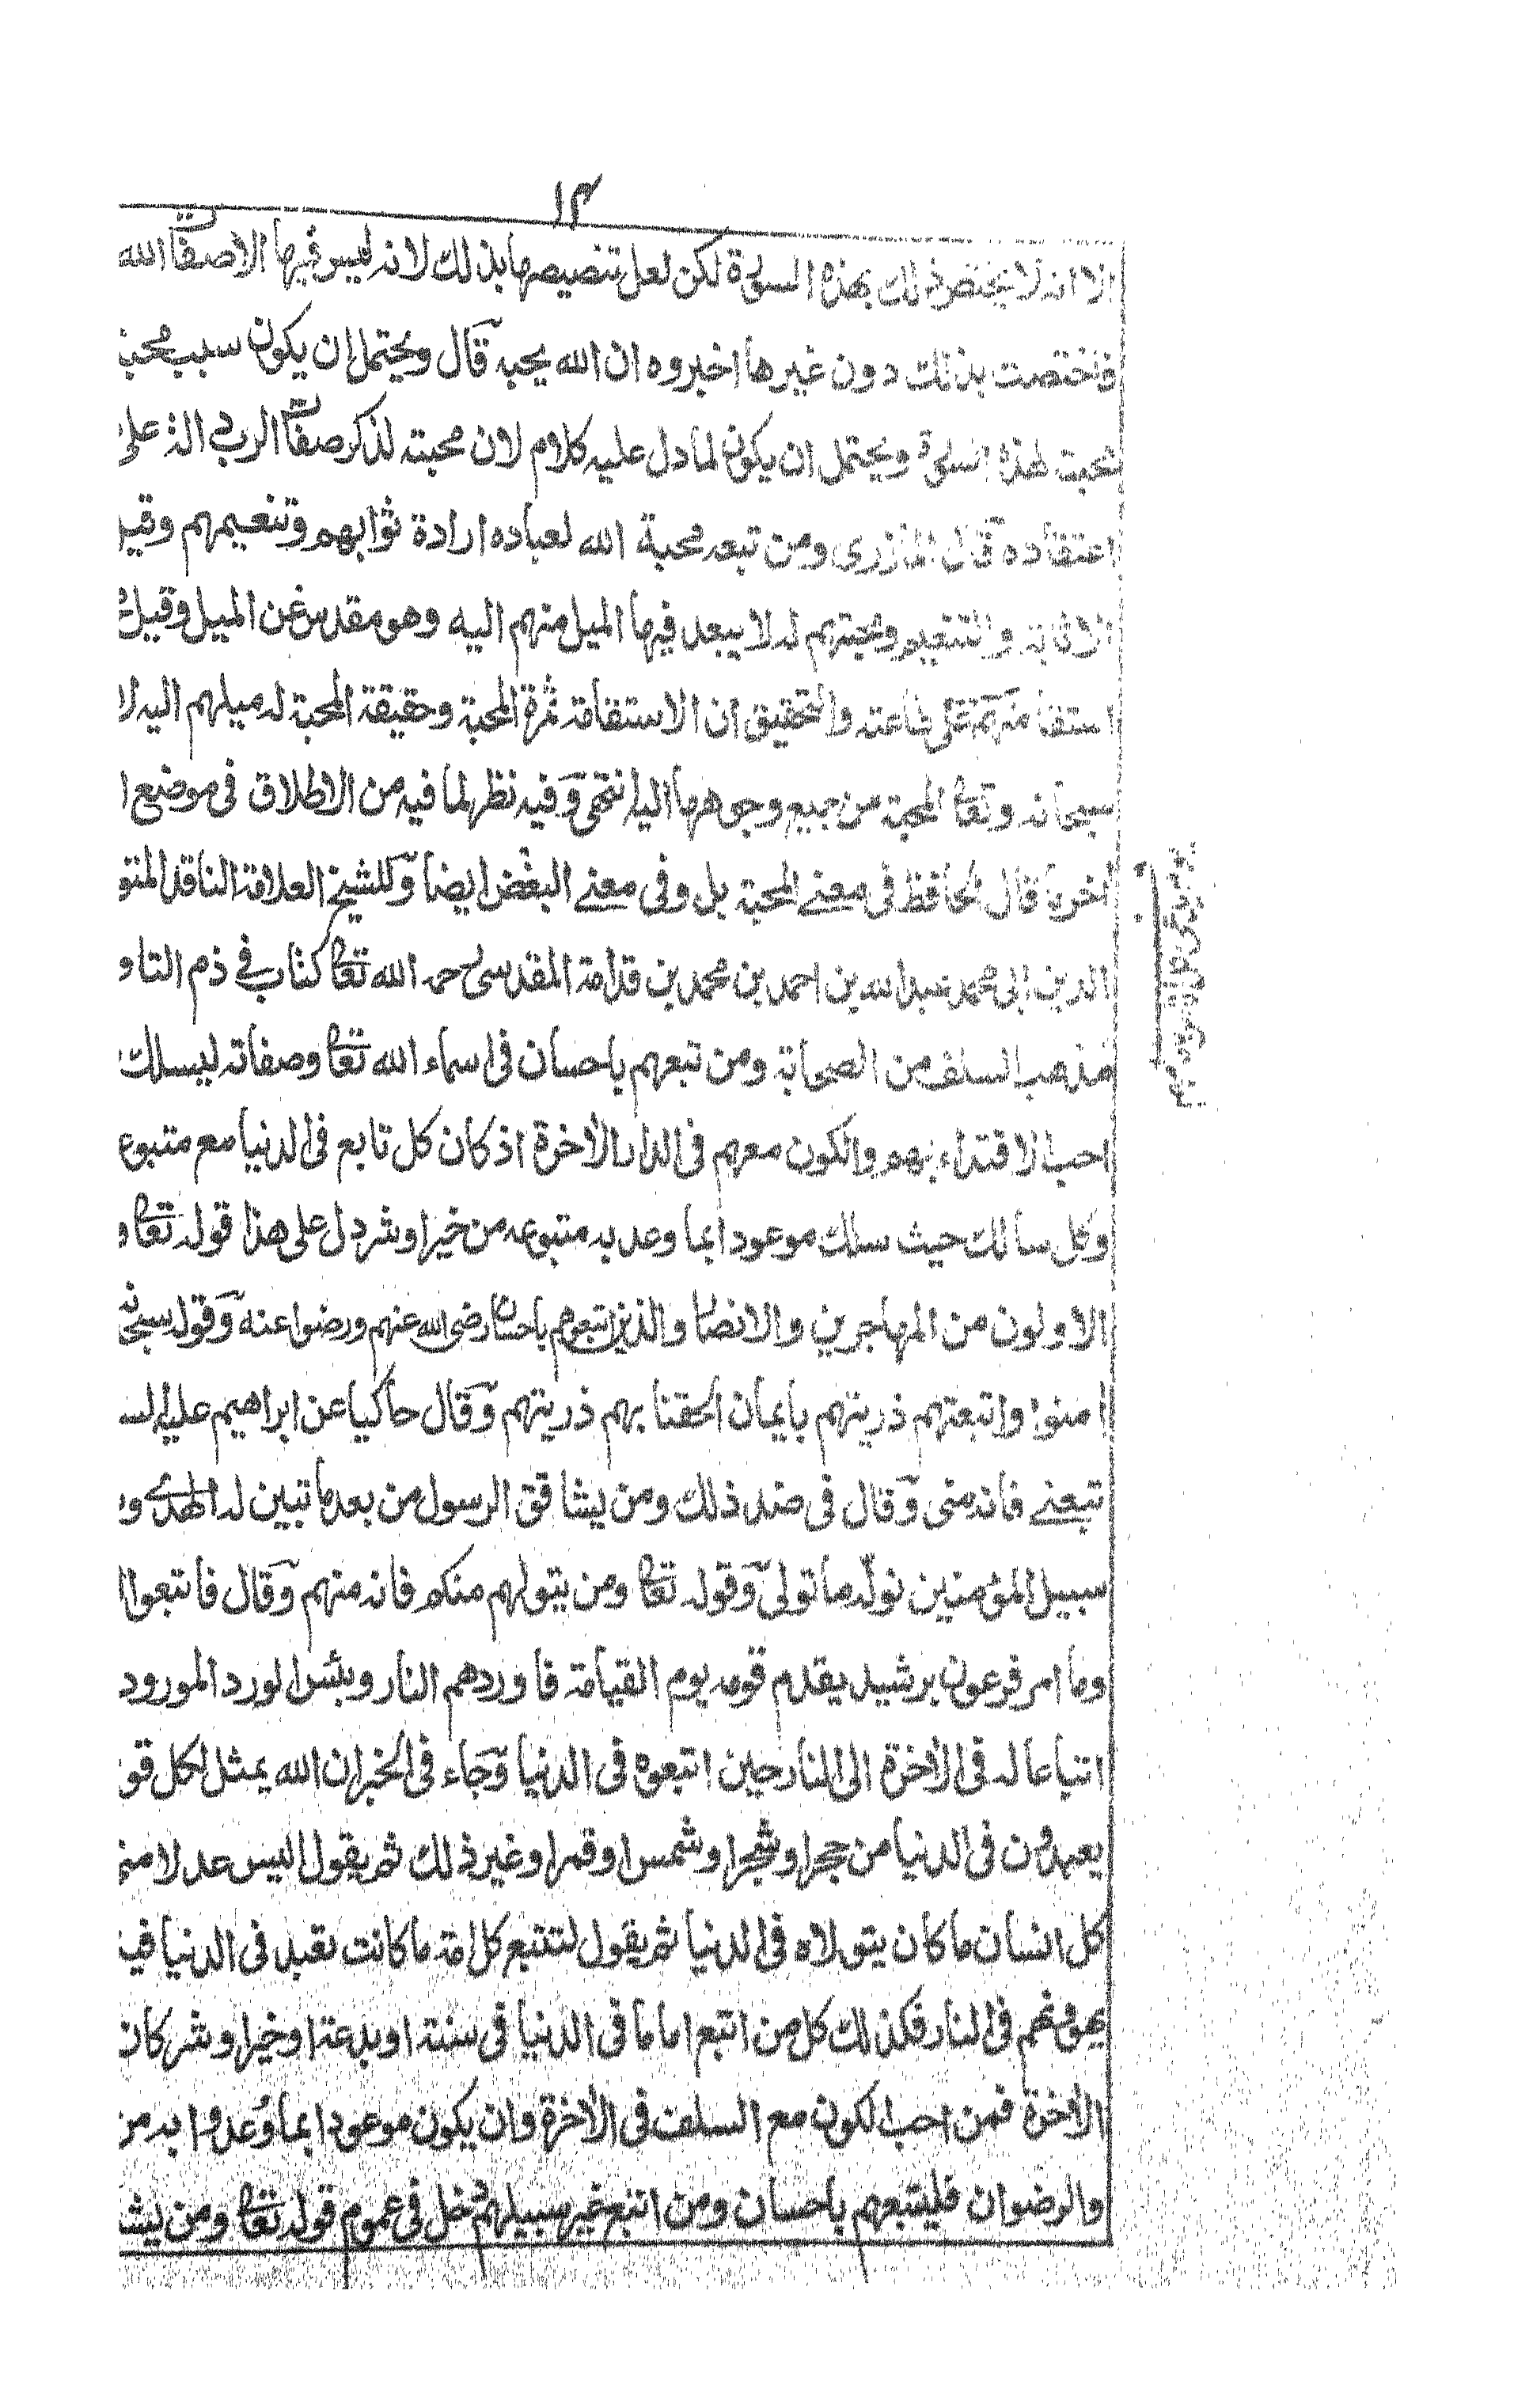 ١٣
الا انه لا يختص ذلك بهذه السورة لكن لعل تنصيصها بذلك لانه ليس فيها الا صفات الله
فاختصت بذلك دون غيرها اخبروه ان الله يحبه قال ويحتمل ان يكون سبب
لهذه السورة ويحتمل ان يكون لما دل عليه كلام لان محبته لذكر صفات الرب دالة على
اعتقاده قال المازري ومن تبعه محبة الله لعباده ارادة ثوابهم وتنعيمهم وقيل
الاثابة والتنعيم ومحبتهم له لا يبعد فيها الميل منهم اليه وهو مقدس عن الميل وقيل
استقامتهم على طاعته والتحقيق ان الاستقامة ثمرة المحبة وحقيقة المحبة له ميلهم اليه لا
سبحانه وتعا المحبة من جميع وجوهها اليه انتهى وفيه نظر لما فيه من الاطلاق فى موضع ا
قال الحافظ فى معنے المحبة بل وفى معنے البغض ايضا وللشيخ العلامة الناقد
الدين ابى محمد عبد الله بن احمد بن محمد بن قدامة المقدسى رحمه الله تعا كتاب فے ذم التاو
مذهب السلف من الصحابة ومن تبعهم باحسان فى اسماء الله تعا وصفاته ليسلك
احب الاقتداء بهم والكون معهم فى الدار الأخرة اذ كان كل تابع فى الدنيا مع متبوع
وكل سالك حيث سلك موعودا بما وعد به متبوعه من خير او شر دل على هذا قوله تعا و
الاولون من المهاجرين والانصار والذين اتبعوهم باحسان رضى الله عنهم ورضوا عنه وقوله سبحانه
امنوا واتبعتهم ذريتهم بايمان الحقنا بهم ذريتهم وقال حاكيا عن ابراهيم عليه الس
تبعنے فانه منى وقال فى ضد ذلك ومن يشاقق الرسول من بعد ما تبين له الهدے و
سبيل المؤمنين نولّه ما تولى وقوله تعا ومن يتولهم منكم فانه منهم وقال فاتبعوا ا
وما امر فرعون برشيد يقدم قومه يوم القيامة فاوردهم النار وبئس الورد المورود
اتباعا له فى الأخرة الى النار حين اتبعوه فى الدنيا وجاء فى الخبر ان الله يمثل لكل قو
يعبدون فى الدنيا من حجر او شجر او شمس او قمر او غير ذلك ثم يقول اليس عدلا من
كل انسان ما كان يتولاه فى الدنيا ثم يقول لتتبع كل امة ما كانت تعبد فى الدنيا
فى النار فكذلك كل من اتبع اماما فى الدنيا فى سنة او بدعة او خير او شر كان
الأخرة فمن احب الكون مع السلف فى الأخرة وان يكون موعودا بما وُعدوا به من
والرضوان فليتبعهم باحسان ومن اتبع غير سبيلهم دخل فى عموم قوله تعا ومن يشا